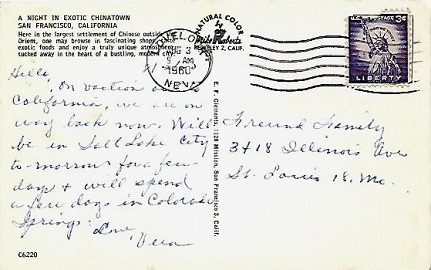 A NIGHT IN EXOTIC CHINATOWN
SAN FRANCISCO, CALIFORNIA
Here in the largest settlement of Chinese outside
Orient, one may browse in fascinating shops,
exotic foods and enjoy a truly unique atmosphere
tucked away in the heart of a bustling, modern city
NATURAL COLOR
BERKELEY 2, CALIF.
AUG 3
AM
1960
NEV.
U.S. POSTAGE 3¢
LIBERTY
Hello,
On vacation
California, we are on
way back now. Will
be in Salt Lake City
to-morrow for a few
days & will spend
a few days in Colorado
Springs.
Love,
Vera
E. F. Clements, Mission, San Francisco 3, Calif.
Freund Family
3418 Illinois Ave
St. Louis 18, Mo.
C6220